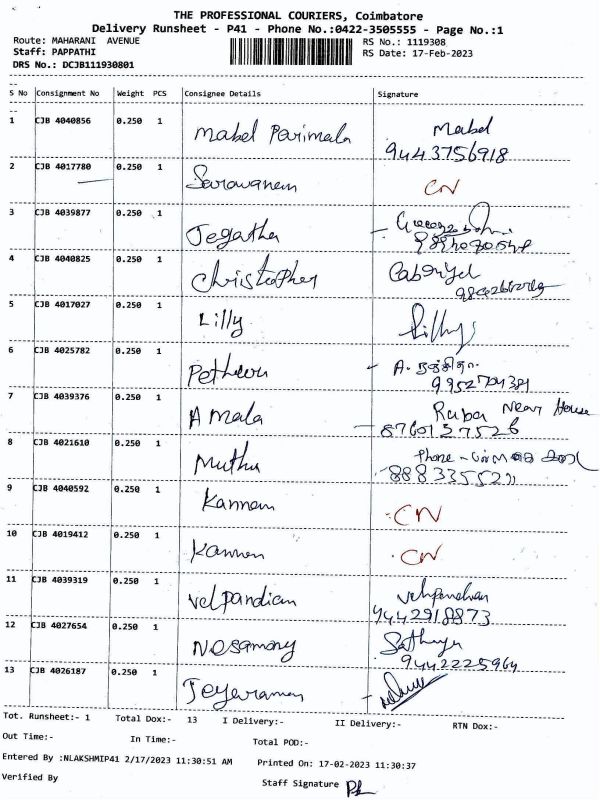 THE PROFESSIONAL COURIERS, Coimbatore
Delivery Runsheet - P41 - Phone No.:0422-3505555 - Page No.:1
Route: MAHARANI AVENUE RS No.: 1119308
Staff: PAPPATHI RS Date: 17-Feb-2023
DRS No.: DCJB111930801
S No Consignment No Weight PCS Consignee Details Signature
1 CJB 4040856 0.250 1 Mabel Parimala Mabel
9443756918
2 CJB 4017780 0.250 1 Saravanam CN
3 CJB 4039877 0.250 1 Jegatha
4 CJB 4040825 0.250 1 Christopher Gabriyel
5 CJB 4017027 0.250 1 Lilly Lilly
6 CJB 4025782 0.250 1 A.
9952704381
7 CJB 4039376 0.250 1 Amala Near House
8760137526
8 CJB 4021610 0.250 1 Muthu Phone -
9 CJB 4040592 0.250 1 Kannan CN
10 CJB 4019412 0.250 1 Kannan CN
11 CJB 4039319 0.250 1 Velpandian
9442918873
12 CJB 4027654 0.250 1 Nesamony Sathya
9442225964
13 CJB 4026187 0.250 1 Jeyaraman
Tot. Runsheet:- 1 Total Dox:- 13 I Delivery:- II Delivery:- RTN Dox:-
Out Time:- In Time:- Total POD:-
Entered By :NLAKSHMIP41 2/17/2023 11:30:51 AM Printed On: 17-02-2023 11:30:37
Verified By Staff Signature